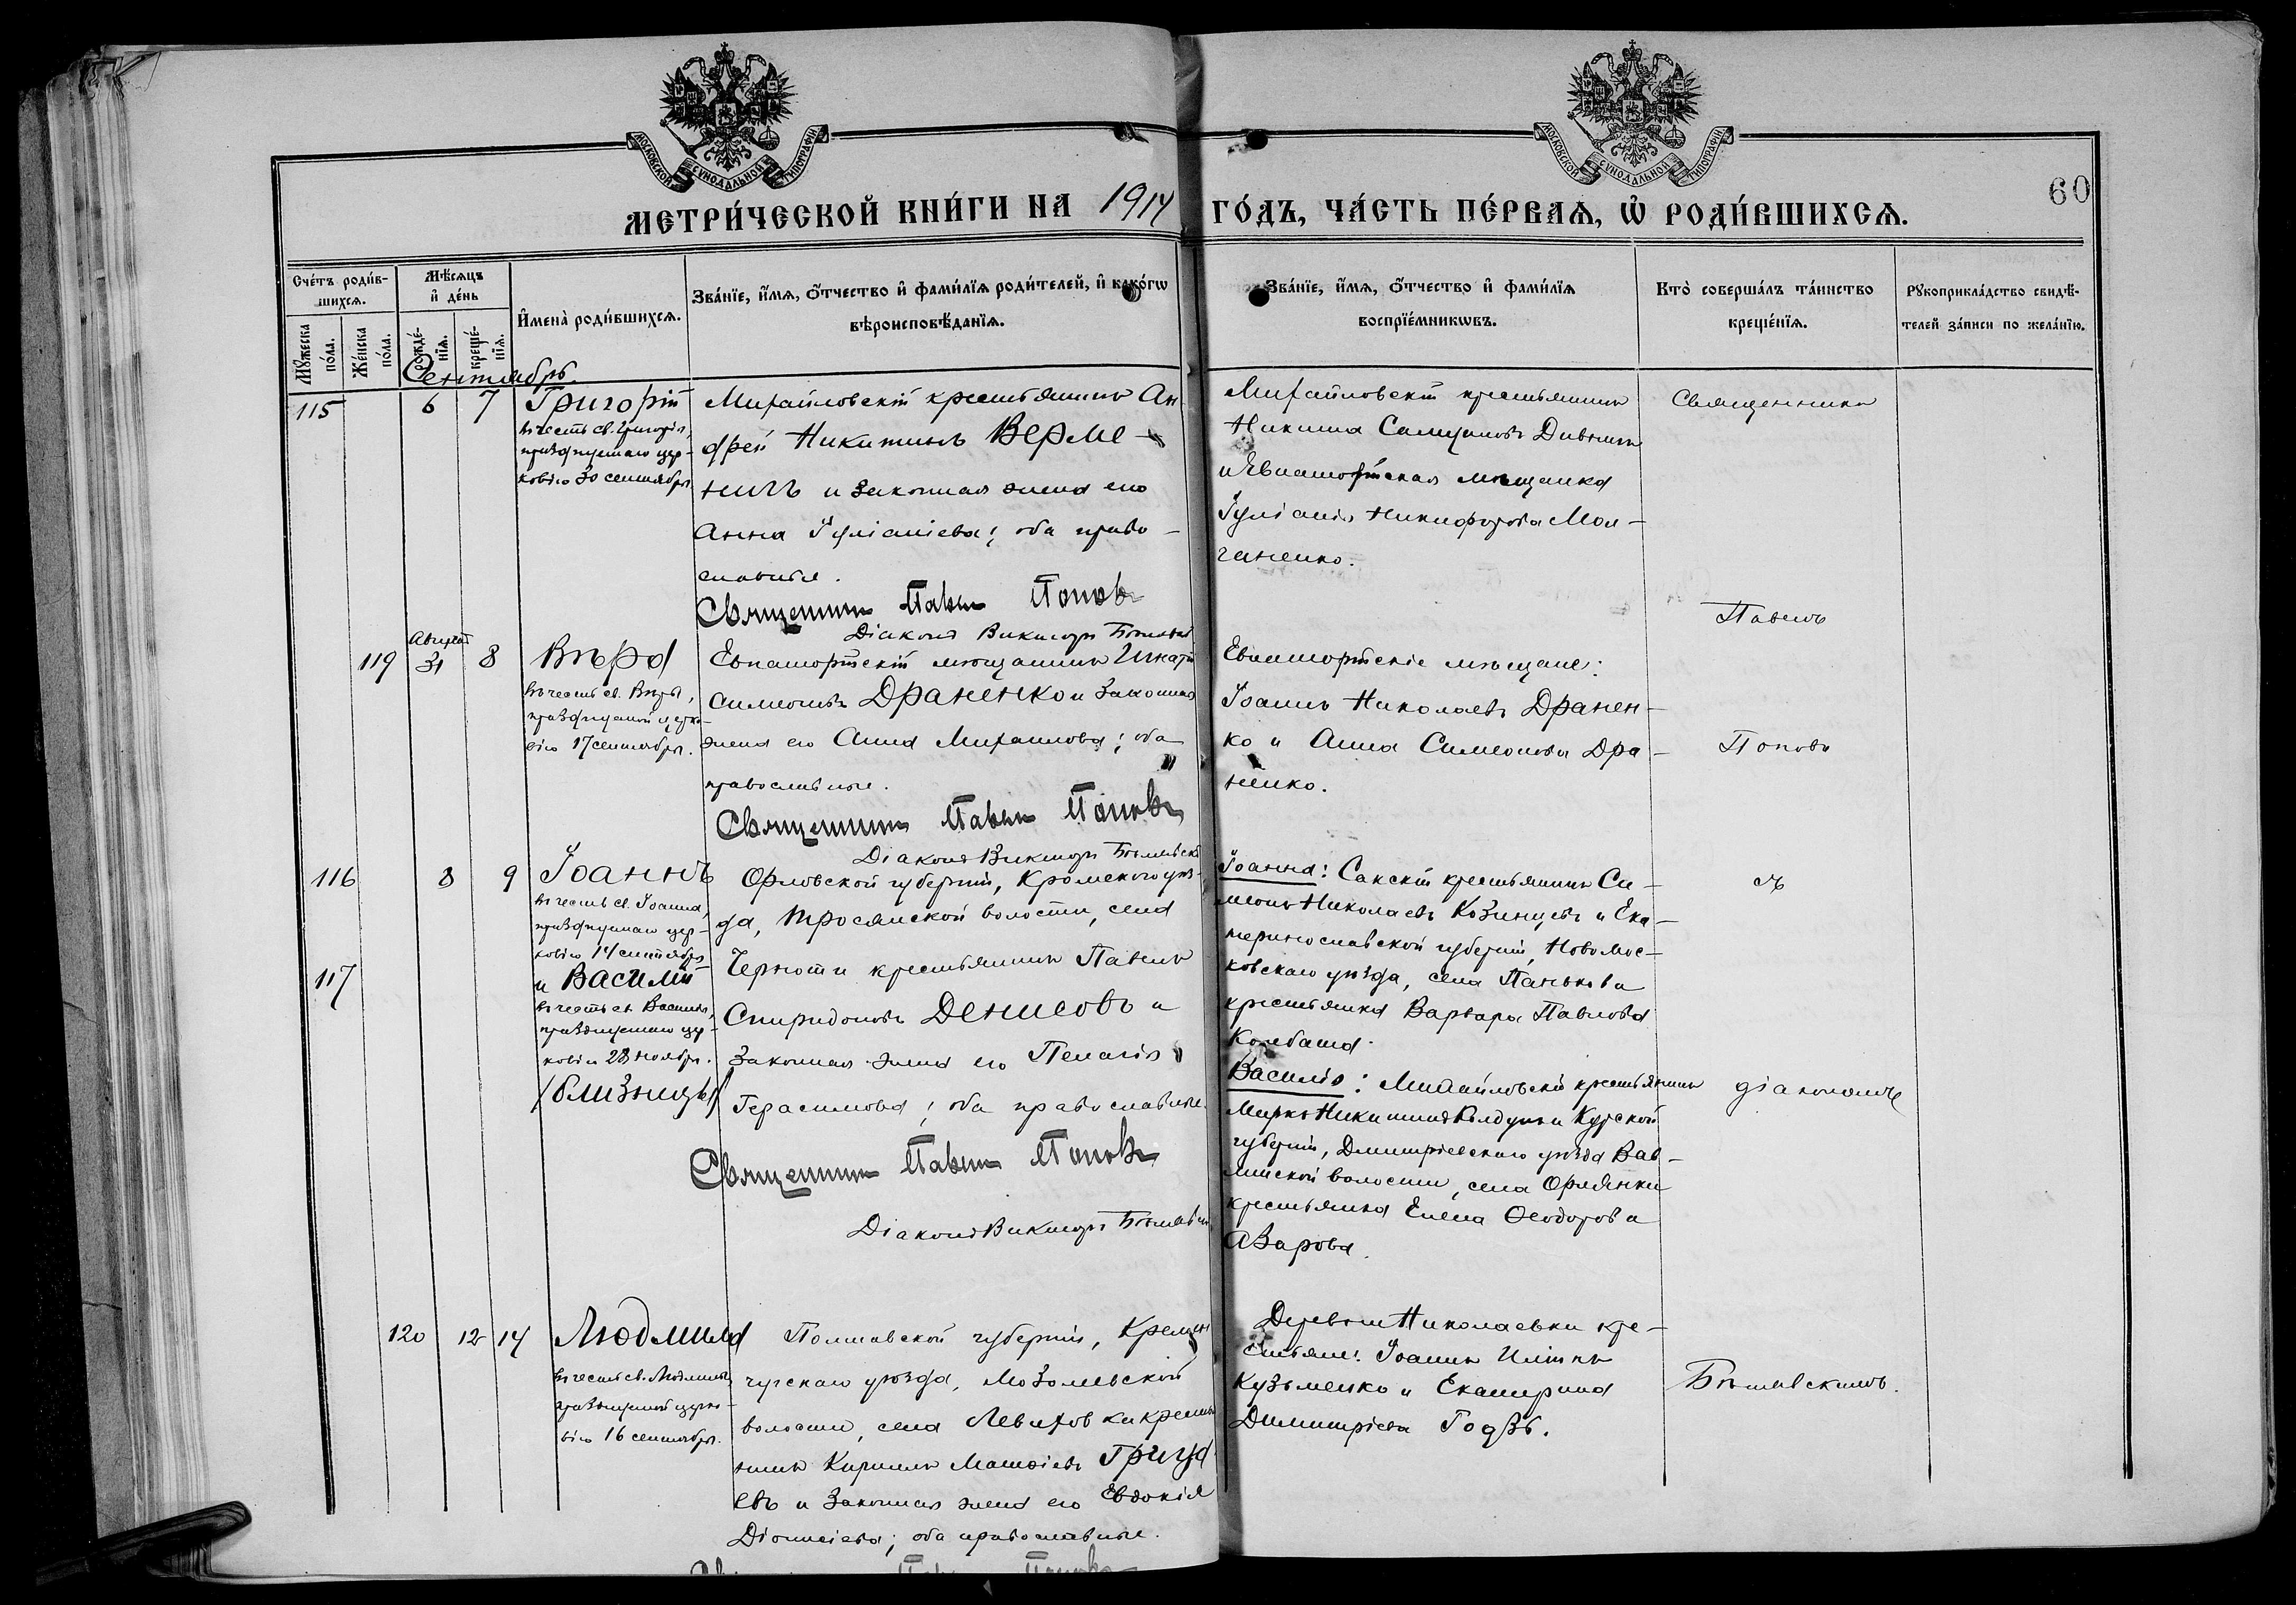 МОСКОВСКОЙ СѴНОДАЛЬНОЙ ТИПОГРАФІИ
МОСКОВСКОЙ СѴНОДАЛЬНОЙ ТИПОГРАФІИ
МЕТРИ́ЧЕСКОЙ КНИ́ГИ НА 1914 ГО́ДЪ, ЧА́СТЬ ПЕ́РВАѦ, Ѡ҆ РОДИ́ВШИХСѦ.
60
Сче́тъ роди́в-
шихсѧ.
Мꙋ́жеска
по́ла.
Же́нска
по́ла.
Мѣ́сѧцъ
и҆ де́нь
рожде́-
нїѧ.
креще́-
нїѧ.
И҆мена̀ роди́вшихсѧ.
Зва́нїе, и҆́мѧ, ѻ҆́тчество и҆ фами́лїѧ роди́телей, и҆ како́гѡ
вѣроисповѣ́данїѧ.
Зва́нїе, и҆́мѧ, ѻ҆́тчество и҆ фами́лїѧ
воспрїе́мникѡвъ.
Кто̀ соверша́лъ та́инство
креще́нїѧ.
Рꙋкоприкла́дство свидѣ́-
телей за́писи по жела́нїю.
Сентябрь.
115
6 7
Григорій
въ честь св. Григорія,
празднуемаго цер-
ковію 30 сентября
Михайловскій крестьянинъ Ан-
дрей Никитинъ Верме-
ничъ и законная жена его
Анна Іуліаніева; оба право-
славные.
Священникъ Павелъ Поповъ
Діаконъ Викторъ
Михайловскій крестьянинъ
Никита
и Евпаторійская мѣщанка
Іуліанія Никифорова Мол-
чаненко.
Священникъ
Павелъ
119
Августъ
31 8
Вѣра
въ честь св. Вѣры,
празднуемой церко-
вію 17 сентября.
Евпаторійскій мѣщанинъ
Симеоновъ Драненко и законная
жена его Анна Михаилова; оба
православные.
Священникъ Павелъ Поповъ
Діаконъ Викторъ
Евпаторійскіе мѣщане:
Іоаннъ Николаевъ Дранен-
ко и Анна Симеонова Дра-
ненко.
Поповъ
116
8 9
Іоаннъ
въ честь св. Іоанна,
празднуемаго цер-
ковію 14 сентября
117
и Василій
въ честь св. Василія,
празднуемаго цер-
ковію 28 ноября.
(близнецы)
Орловской губерніи, Кромскаго уѣз-
да, Тросянской волости, села
Черноти крестьянинъ Павелъ
Спиридоновъ Денисовъ и
законная жена его Пелагія
Герасимова; оба православные.
Священникъ Павелъ Поповъ
Діаконъ Викторъ
Іоанна: Сакскій крестьянинъ Си-
меонъ Николаевъ Козинцевъ и Ека-
теринославской губерніи, Новомос-
ковскаго уѣзда, села Панькова
крестьянка Варвара Павлова
Колбаша.
Василія: Михайловскій крестьянинъ
Курской
губерніи, Димитріевскаго уѣзда
волости, села Орлянки
крестьянка Елена Ѳеодорова
Азарова.
съ
діакономъ
120
12 14
Людмила
въ честь св. Людмилы,
празднуемой церко-
вію 16 сентября.
Полтавской губерніи, Кремен-
чугскаго уѣзда, Мозолевской
волости, села крестья-
нинъ Кириллъ Матѳіевъ Грица-
евъ и законная жена его Евдокія
Діонисіева; оба православные.
Деревни Николаевки кре-
стьяне: Іоаннъ Иліинъ
Кузьменко и Екатерина
Димитріева Годзь.
Бѣлявскимъ.